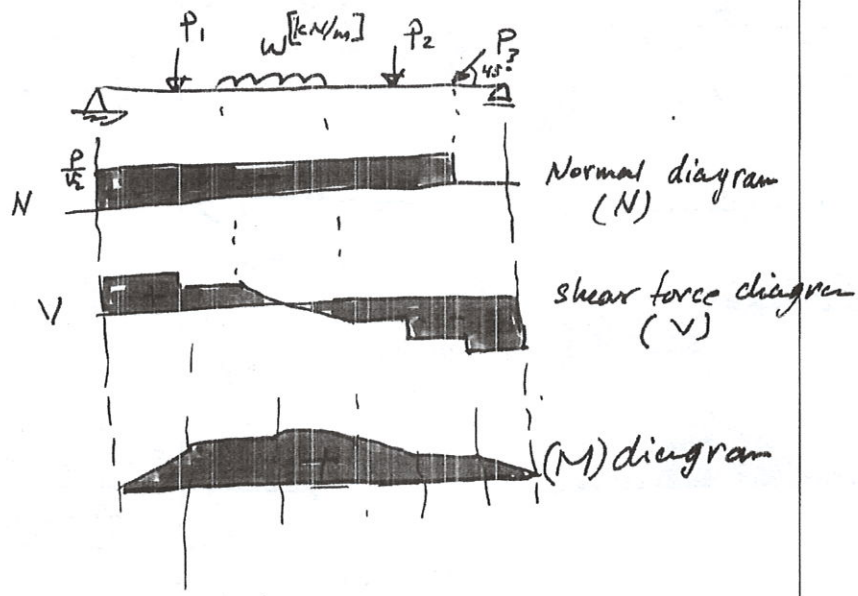 P1 w[kN/m] P2 P3
45°
P/√2
N
Normal diagram
(N)
V
shear force diagram
(V)
(M) diagram